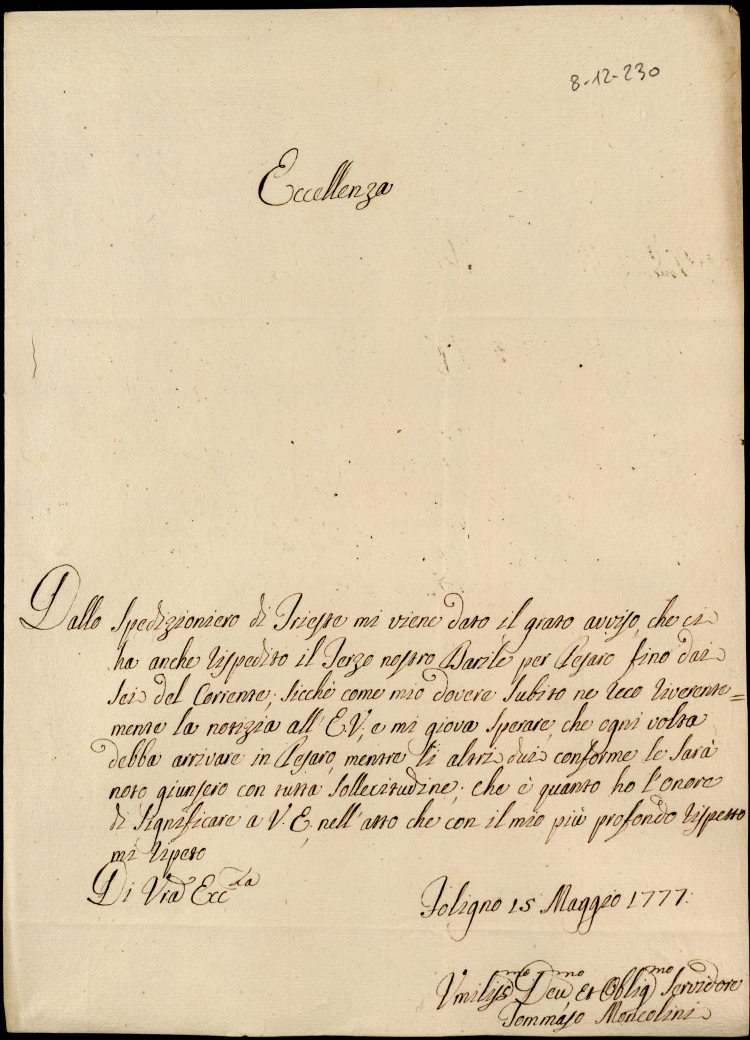 8-12-230
Eccellenza
Dallo Spedizioniero di Trieste mi viene dato il grato avviso, che ci
ha anche rispedito il Terzo nostro Barile per Pesaro fino dai
sei del Corrente; sicchè come mio dovere subito ne reco riverente=
mente la notizia all' E.V, e mi giova sperare, che ogni volta
debba arrivare in Pesaro, mentre li altri dui conforme le sarà
noto giunsero con tutta sollecitudine; che è quanto ho l'onore
di significare a V. E, nell' atto che con il mio più profondo rispetto
mi ripeto
Di Vra Eccza
Foligno 15 Maggio 1777.
Umilissmo Devmo et Obligmo Servidore
Tommaso